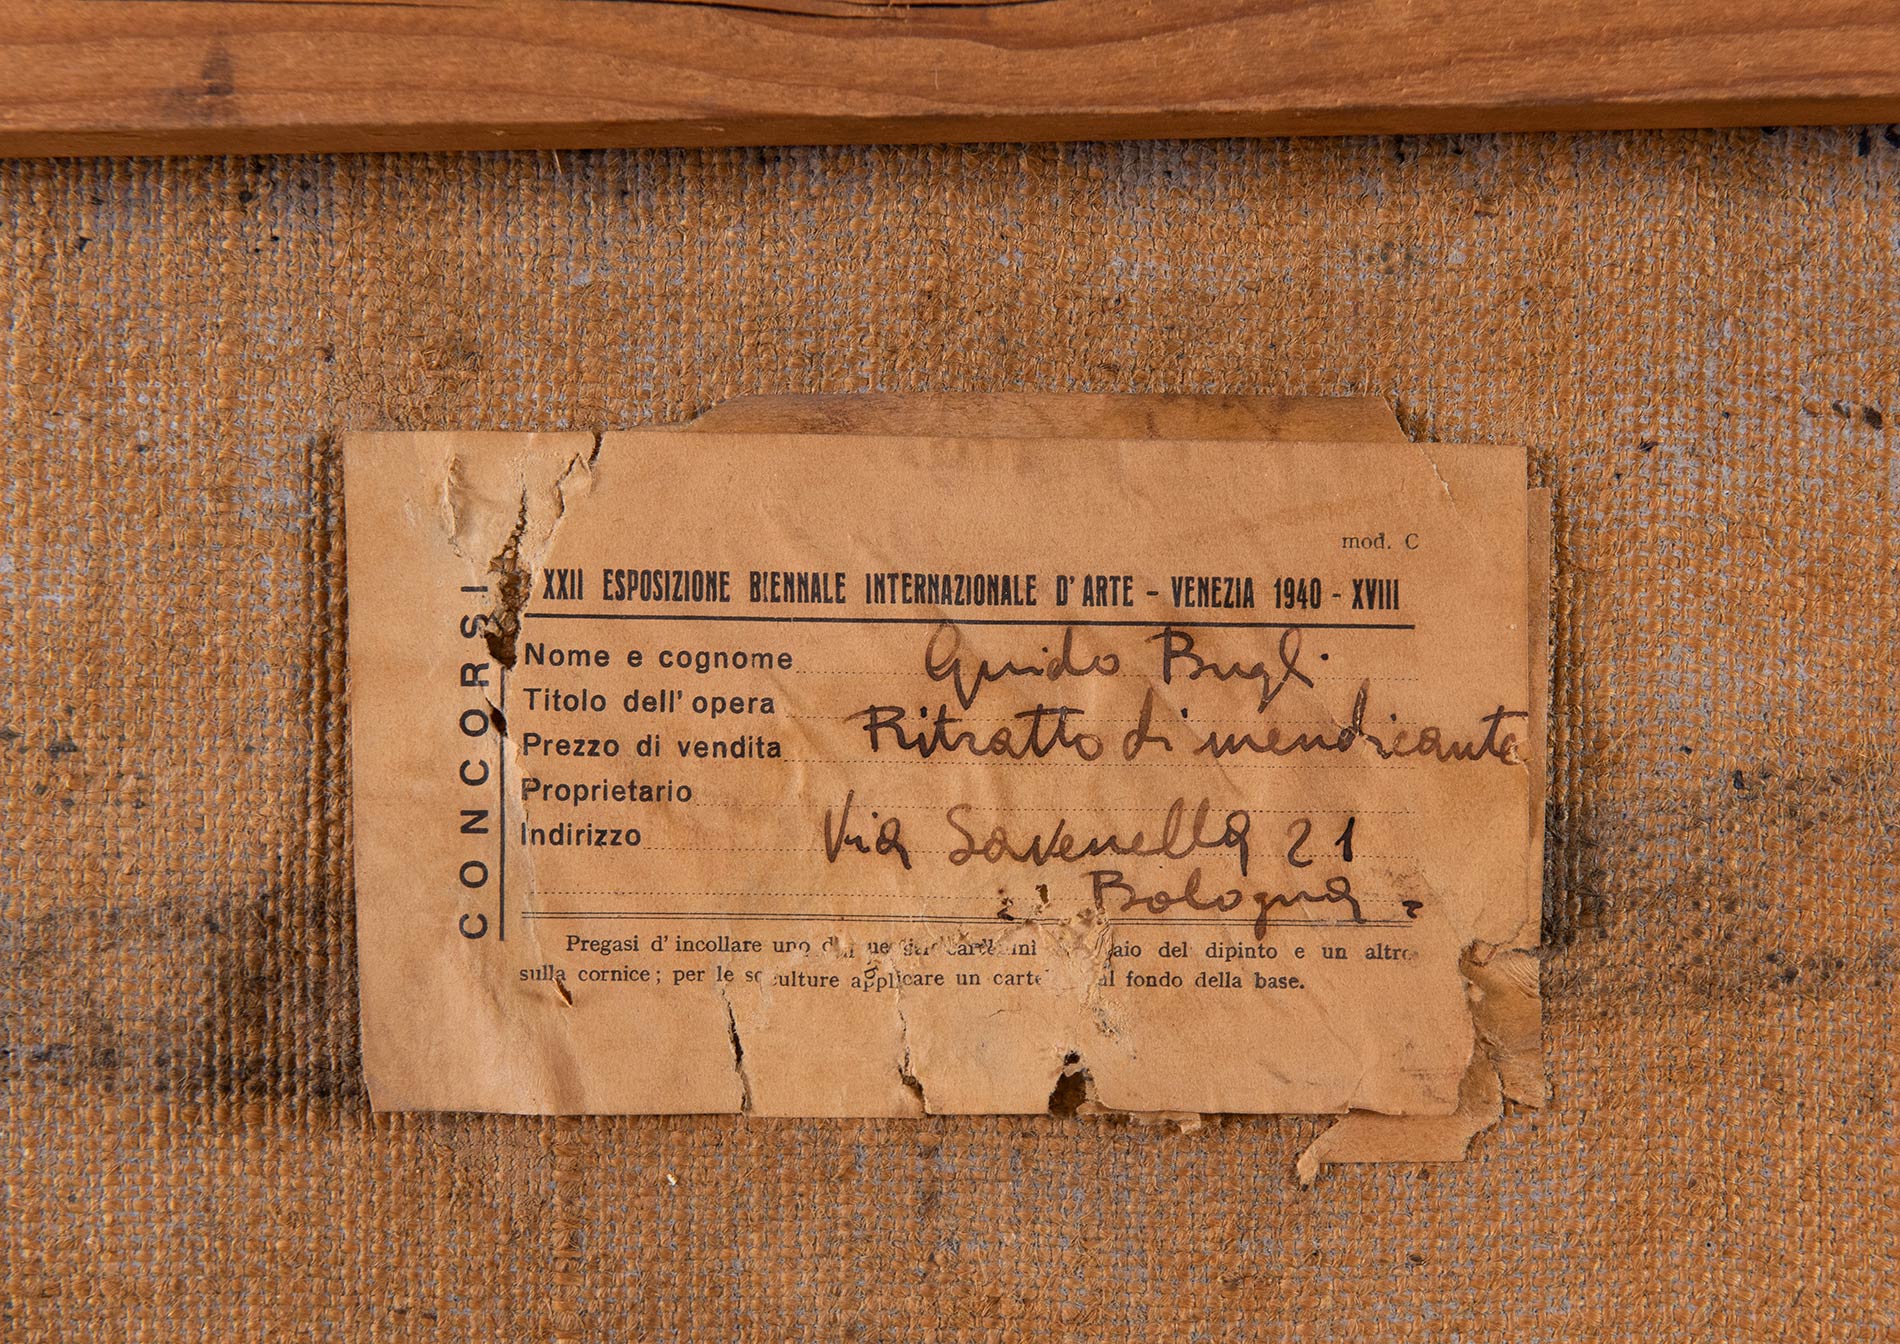 mod. C
CONCORSI
XXII ESPOSIZIONE BIENNALE INTERNAZIONALE D'ARTE - VENEZIA 1940 - XVIII
Nome e cognome Guido Bugli
Titolo dell'opera Ritratto di mendicante
Prezzo di vendita
Proprietario
Indirizzo Via Savenella 21
Bologna
Pregasi d'incollare uno del dipinto e un altro
sulla cornice; per le sculture applicare un al fondo della base.